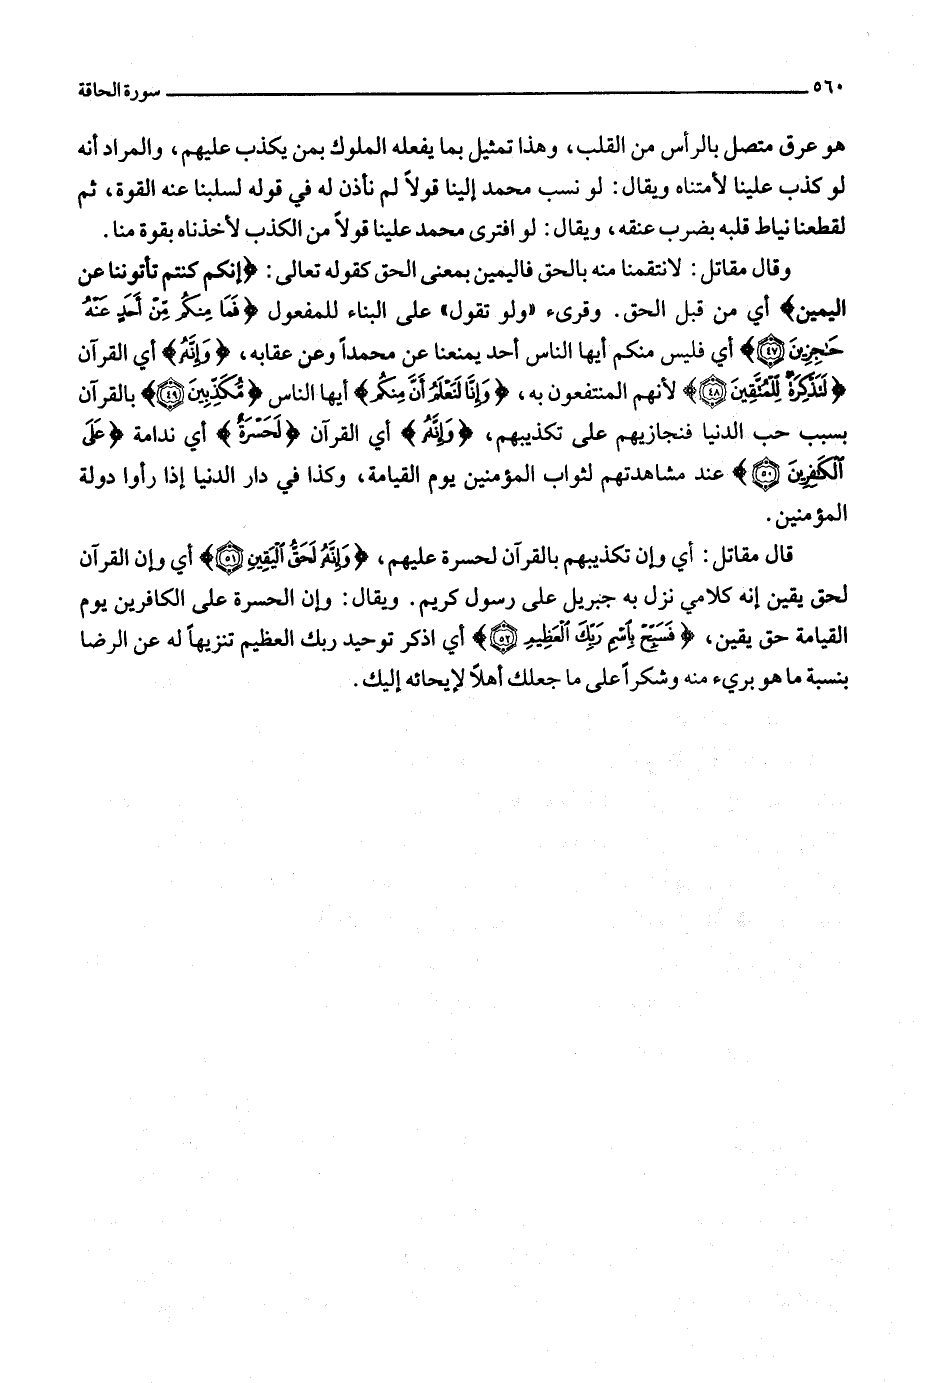 ٥٦٠ سورة الحاقة
هو عرق متصل بالرأس من القلب، وهذا تمثيل بما يفعله الملوك بمن يكذب عليهم، والمراد أنه
لو كذب علينا لأمتناه ويقال: لو نسب محمد إلينا قولاً لم نأذن له في قوله لسلبنا عنه القوة، ثم
لقطعنا نياط قلبه بضرب عنقه، ويقال: لو افترى محمد علينا قولاً من الكذب لأخذناه بقوة منا.
وقال مقاتل: لانتقمنا منه بالحق فاليمين بمعنى الحق كقوله تعالى: ﴿إنكم كنتم تأتوننا عن
اليمين﴾ أي من قبل الحق. وقرىء «ولو تقول» على البناء للمفعول ﴿فَمَا مِنكُم مِّنْ أَحَدٍ عَنْهُ
حَٰجِزِينَ ٤٧﴾ أي فليس منكم أيها الناس أحد يمنعنا عن محمداً وعن عقابه، ﴿وَإِنَّهُ﴾ أي القرآن
﴿لَتَذْكِرَةٌ لِّلْمُتَّقِينَ ٤٨﴾ لأنهم المنتفعون به، ﴿وَإِنَّا لَنَعْلَمُ أَنَّ مِنكُم﴾ أيها الناس ﴿مُّكَذِّبِينَ ٤٩﴾ بالقرآن
بسبب حب الدنيا فنجازيهم على تكذيبهم، ﴿وَإِنَّهُ﴾ أي القرآن ﴿لَحَسْرَةٌ﴾ أي ندامة ﴿عَلَى
ٱلْكَٰفِرِينَ ٥٠﴾ عند مشاهدتهم لثواب المؤمنين يوم القيامة، وكذا في دار الدنيا إذا رأوا دولة
المؤمنين.
قال مقاتل: أي وإن تكذيبهم بالقرآن لحسرة عليهم، ﴿وَإِنَّهُ لَحَقُّ ٱلْيَقِينِ ٥١﴾ أي وإن القرآن
لحق يقين إنه كلامي نزل به جبريل على رسول كريم. ويقال: وإن الحسرة على الكافرين يوم
القيامة حق يقين، ﴿فَسَبِّحْ بِٱسْمِ رَبِّكَ ٱلْعَظِيمِ ٥٢﴾ أي اذكر توحيد ربك العظيم تنزيهاً له عن الرضا
بنسبة ما هو بريء منه وشكراً على ما جعلك أهلاً لإيحائه إليك.